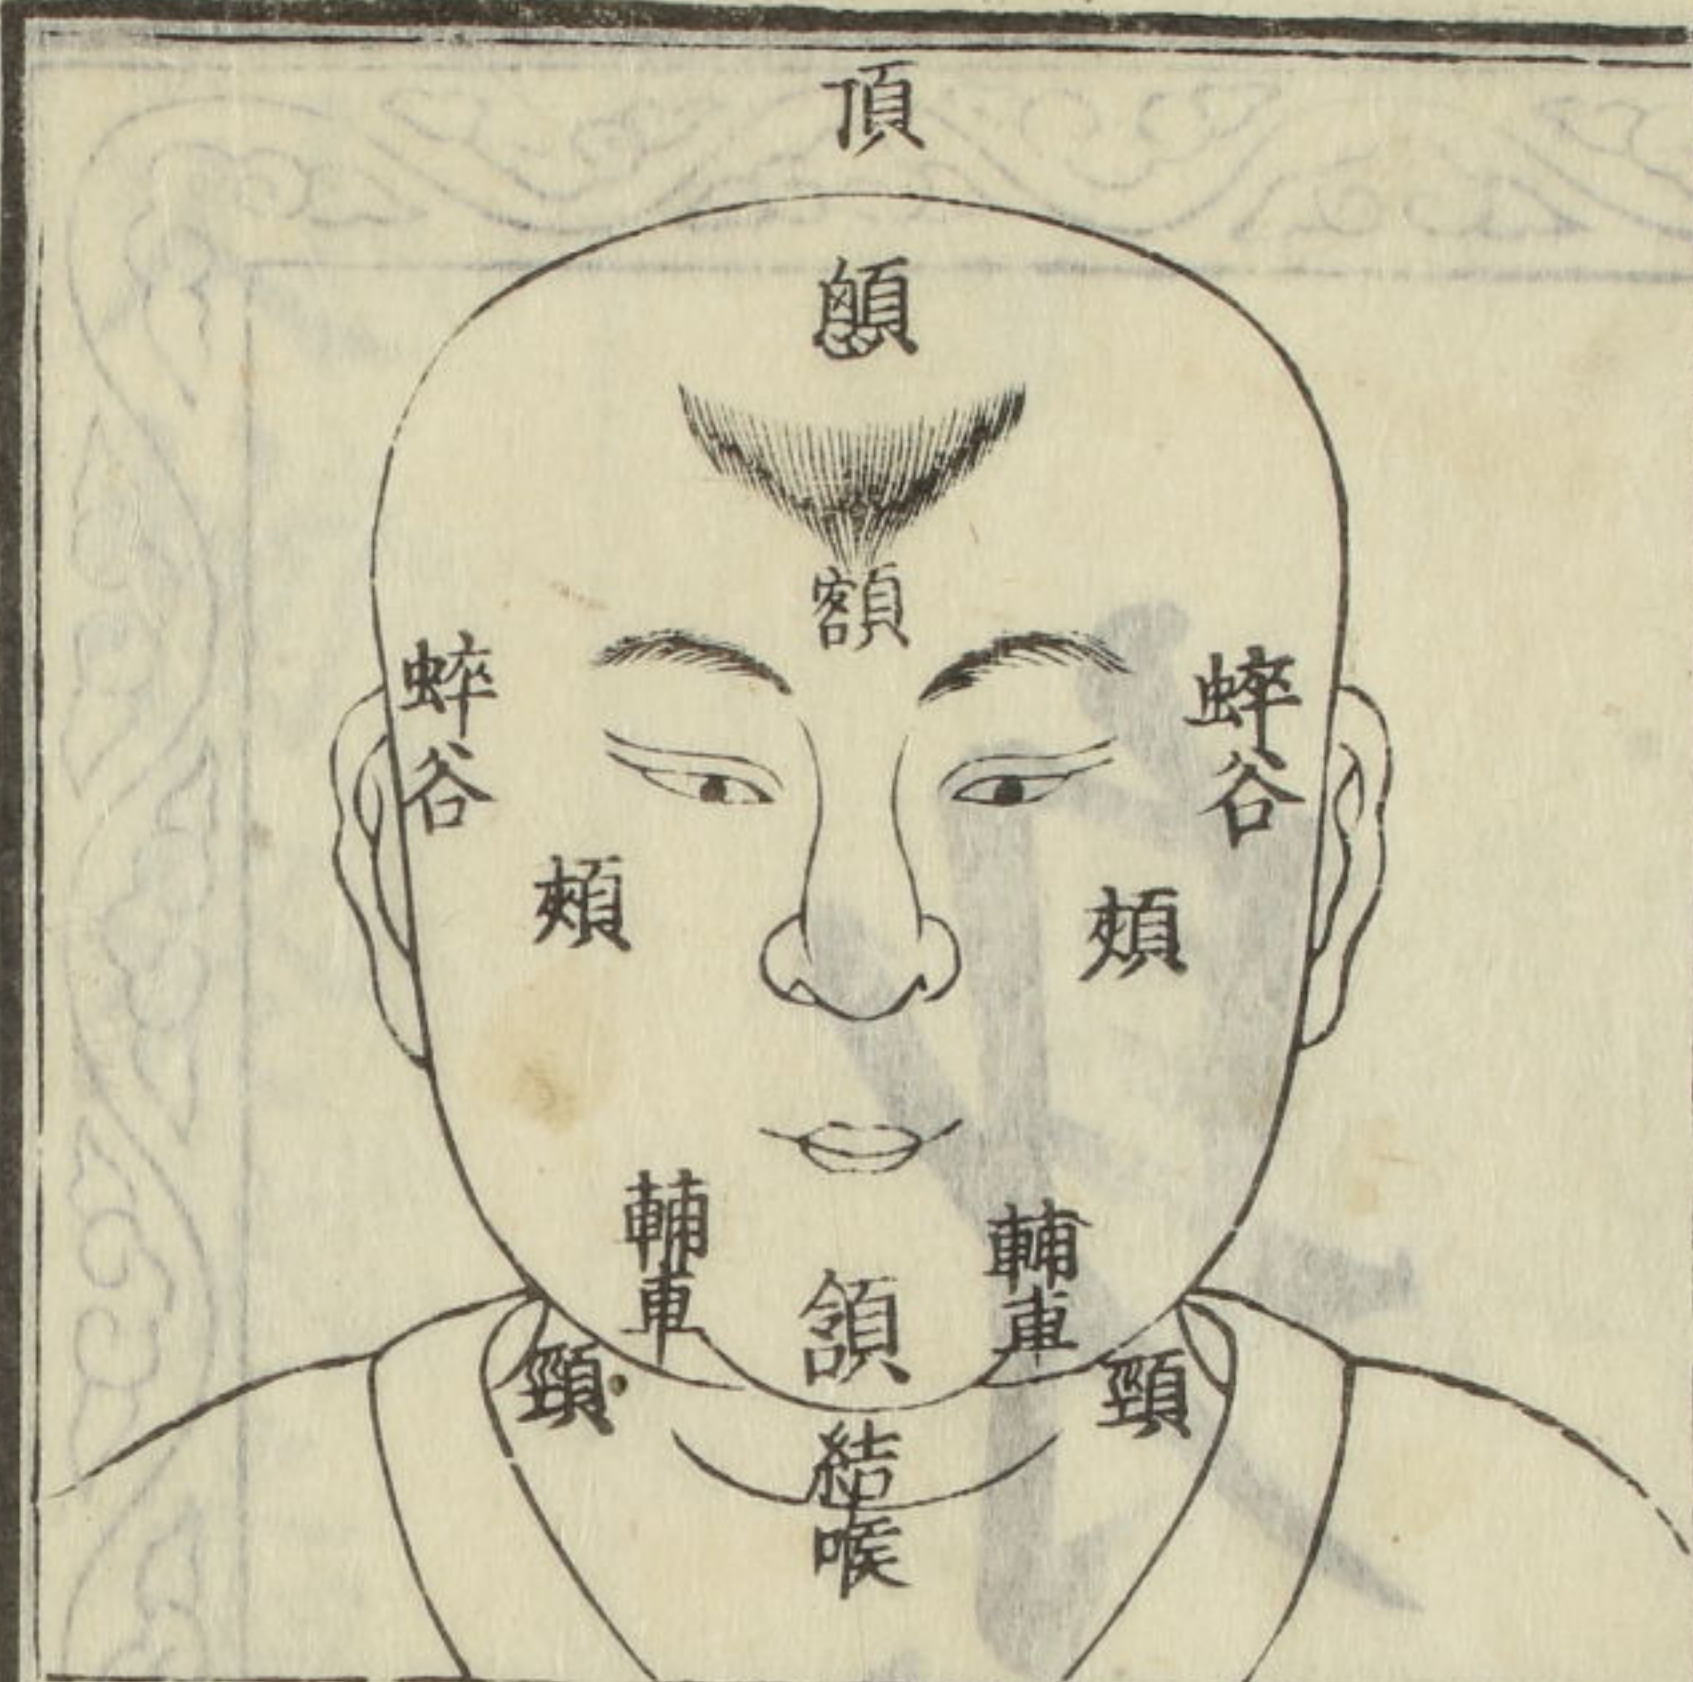 頂
顖
額
蜶谷
蜶谷
頰
頰
輔車
輔車
頷
頸
頸
結喉